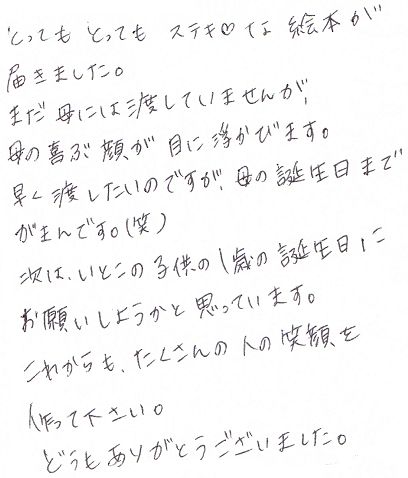 とっても とっても ステキ♡な 絵本が
届きました。
まだ 母には渡していませんが、
母の喜ぶ顔が 目に浮かびます。
早く渡したいのですが、母の誕生日まで
がまんです。(笑)
次は、いとこの子供の1歳の誕生日に
お願いしようかと思っています。
これからも、たくさんの人の笑顔を
作って下さい。
どうもありがとうございました。